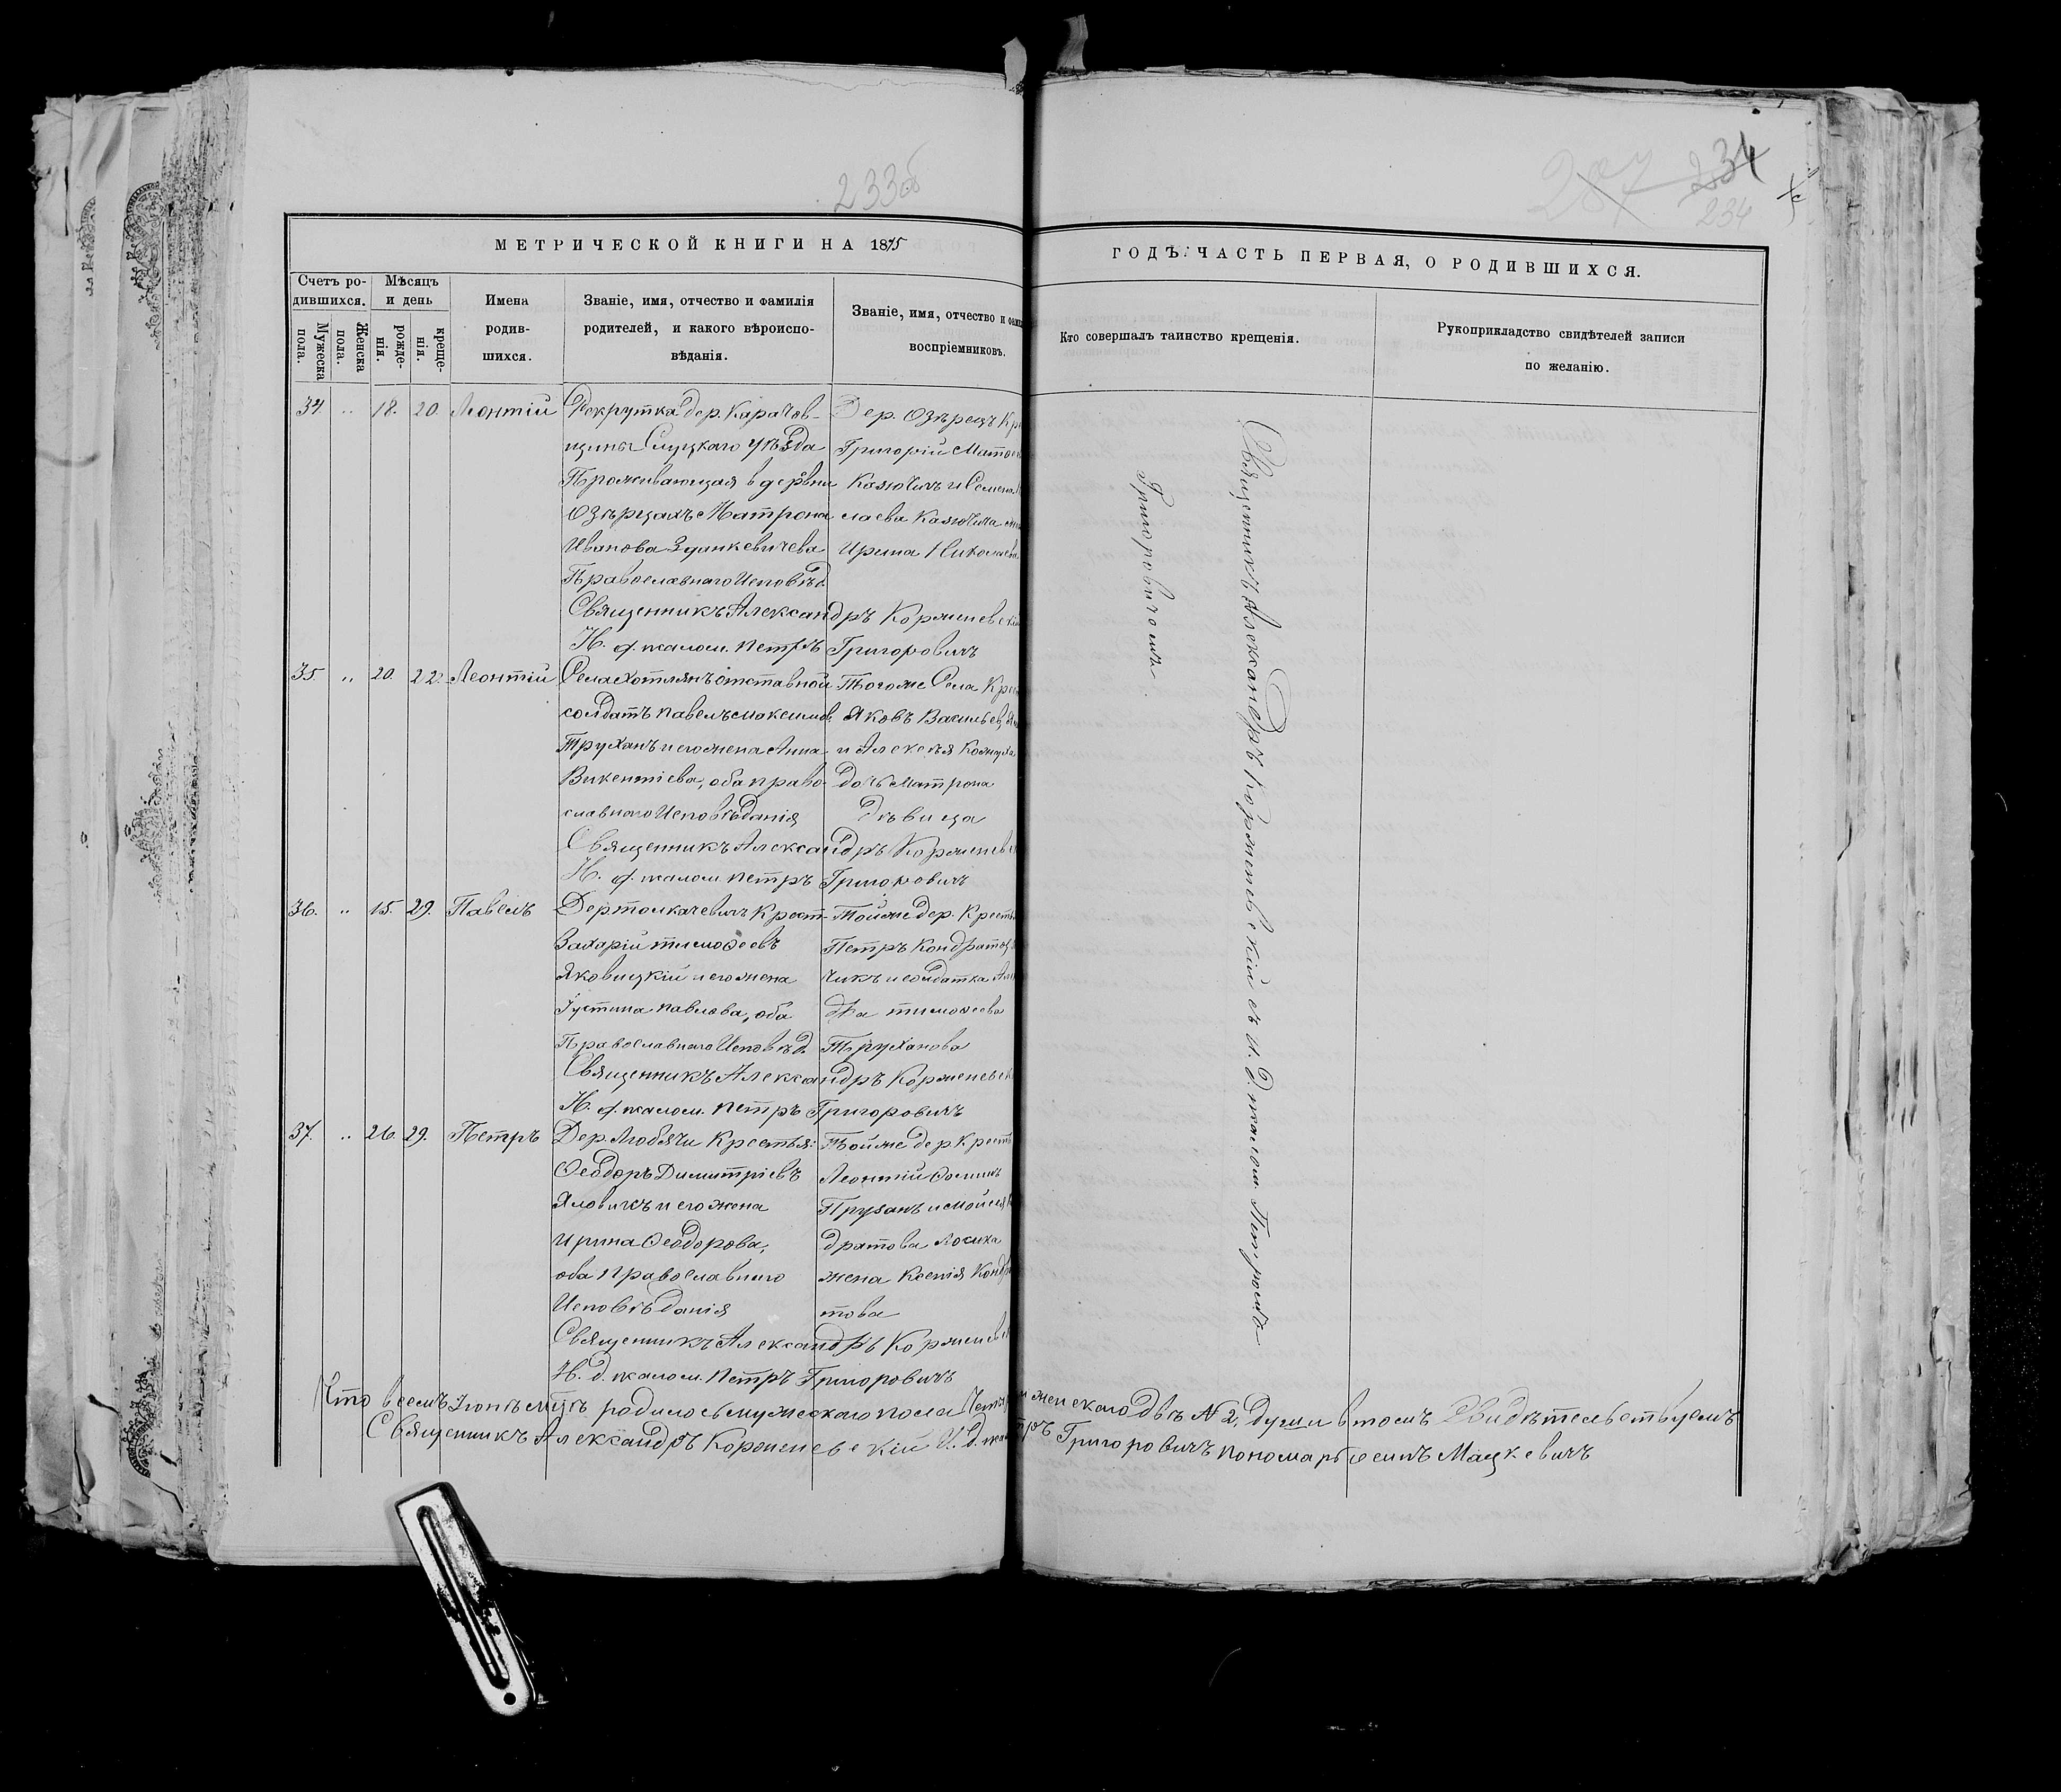 233об
234
234
МЕТРИЧЕСКОЙ КНИГИ НА 1875
ГОДЪ: ЧАСТЬ ПЕРВАЯ, О РОДИВШИХСЯ.
Счетъ ро-
дившихся.
Мужеска
пола.
Женска
пола.
Мѣсяцъ
и день
рожде-
нія.
креще-
нія.
Имена
родив-
шихся.
Званіе, имя, отчество и фамилія
родителей, и какого вѣроиспо-
вѣданія.
Званіе, имя, отчество и фами
воспріемниковъ.
Кто совершалъ таинство крещенія.
Рукоприкладство свидѣтелей записи
по желанію.
34 „ 18. 20. Леонтій
Рекрутка дер. Карачов-
щины Слуцкаго уѣзда
Проживающая в деревни
Озерцахъ Матрона
Иванова Зданкевичева
Православнаго Исповѣд.
Дер. Озѣрецъ Кр
Григорій
Казючиъ и Семена
слаева Казючича
Ирина Николаева
Священникъ Александръ Корженевскі
И. д. псалом. Петръ Григоровичъ
35 „ 20. 22. Леонтій
Села Хотлянъ отставной
солдатъ Павелъ Максимов.
Труханъ и его жена Анна
Викентіева, оба право-
славнаго Исповѣданія
Тогоже Села Кре
Яковъ Васильевъ
и Алексѣя
дочь Матрона
Дѣвица
Священникъ Александръ Корженев
И. д. псалом. Петръ Григоровичъ
36. „ 15. 29. Павелъ
Дер Толкачевичъ Крест-
Захарій Тимоѳеевъ
Яковицкій и его жена
Іустина Павлова, оба
Православнаго Исповѣд.
Тойже дер. Кресть
Петръ Кондратъ
чикъ и солдатка
Тимоѳеева
Труханова
Священникъ Александръ Корженевск
И. д. псалом. Петръ Григоровичъ
37. „ 26. 29. Петръ
Дер. Любячи Крестья:
Ѳеодоръ Димитріевъ
Яловикъ и его жена
Ирина Ѳеодорова,
оба Православнаго
Исповѣданія
Тойже дер Кресть
Леонтій Ѳоминъ
и Мойсея
дратова Лосика
жена Ксенія Кондр
това
Священникъ Александръ Коржене
И. д. псалом. Петръ Григоровичъ
Священникъ Александръ Корженевскій съ и. д. псалом. Петромъ
Григоровичомъ
Что всемъ Іюнѣ мцѣ родилось мужескаго пола женскаго двѣ № 2, души в томъ Свидѣтельствуемъ
Священникъ Александръ Корженевскій И. д. Григоровичъ пономарь Мацкевичъ